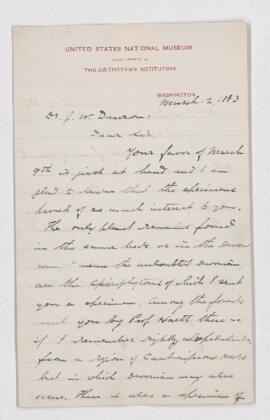 UNITED STATES NATIONAL MUSEUM
THE SMITHSONIAN INSTITUTION
WASHINGTON
March 2, 1883
Dr. J. W. Dawson,
Dear Sir,
Your favor of March
9th is just at hand and I am
glad to learn that the specimens
proved of so much interest to you.
The only plant remains found
in the same beds as in the
name the undoubted Devonian,
are the Spirophytons of which I sent
you a specimen. Among the fossils
sent you by Prof. Hartt there is,
if I remember rightly, a Lepidodendron
from a region of Carboniferous rocks
but in which Devonian may also
occur. There is also a specimen of